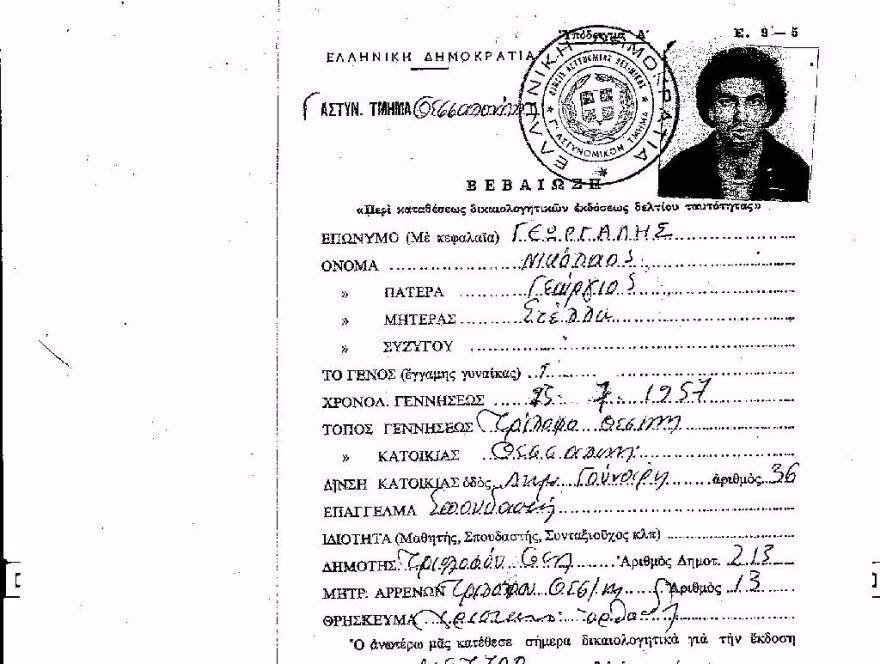 Ὑπόδειγμα Δ΄ Ε. 9 – 5
ΕΛΛΗΝΙΚΗ ΔΗΜΟΚΡΑΤΙΑ
ΕΛΛΗΝΙΚΗ ΔΗΜΟΚΡΑΤΙΑ
Γ΄ ΑΣΤΥΝΟΜΙΚΟΝ ΤΜΗΜΑ
ΑΣΤΥΝ. ΤΜΗΜΑ Θεσσαλονίκης
ΒΕΒΑΙΩΣΗ
«Περὶ καταθέσεως δικαιολογητικῶν ἐκδόσεως δελτίου ταυτότητας»
ΕΠΩΝΥΜΟ (Μὲ κεφαλαῖα) ΓΕΩΡΓΑΛΗΣ
ΟΝΟΜΑ Νικόλαος
» ΠΑΤΕΡΑ Γεώργιος
» ΜΗΤΕΡΑΣ Στέλλα
» ΣΥΖΥΓΟΥ
ΤΟ ΓΕΝΟΣ (ἔγγαμης γυναίκας)
ΧΡΟΝΟΛ. ΓΕΝΝΗΣΕΩΣ 25 - 7 - 1957
ΤΟΠΟΣ ΓΕΝΝΗΣΕΩΣ Τρίλοφο Θεσ/νίκης
» ΚΑΤΟΙΚΙΑΣ
Δ/ΝΣΗ ΚΑΤΟΙΚΙΑΣ ὁδὸς Δημ. Γούναρη ἀριθμὸς 36
ΕΠΑΓΓΕΛΜΑ Σπουδαστής
ΙΔΙΟΤΗΤΑ (Μαθητής, Σπουδαστής, Συνταξιοῦχος κλπ)
ΔΗΜΟΤΗΣ Τριλόφου Θεσ Ἀριθμὸς Δημοτ. 213
ΜΗΤΡ. ΑΡΡΕΝΩΝ Τριλόφου Θεσ/νίκης Ἀριθμὸς 13
ΘΡΗΣΚΕΥΜΑ
Ὁ ἀνωτέρω μᾶς κατέθεσε σήμερα δικαιολογητικὰ γιὰ τὴν ἔκδοση